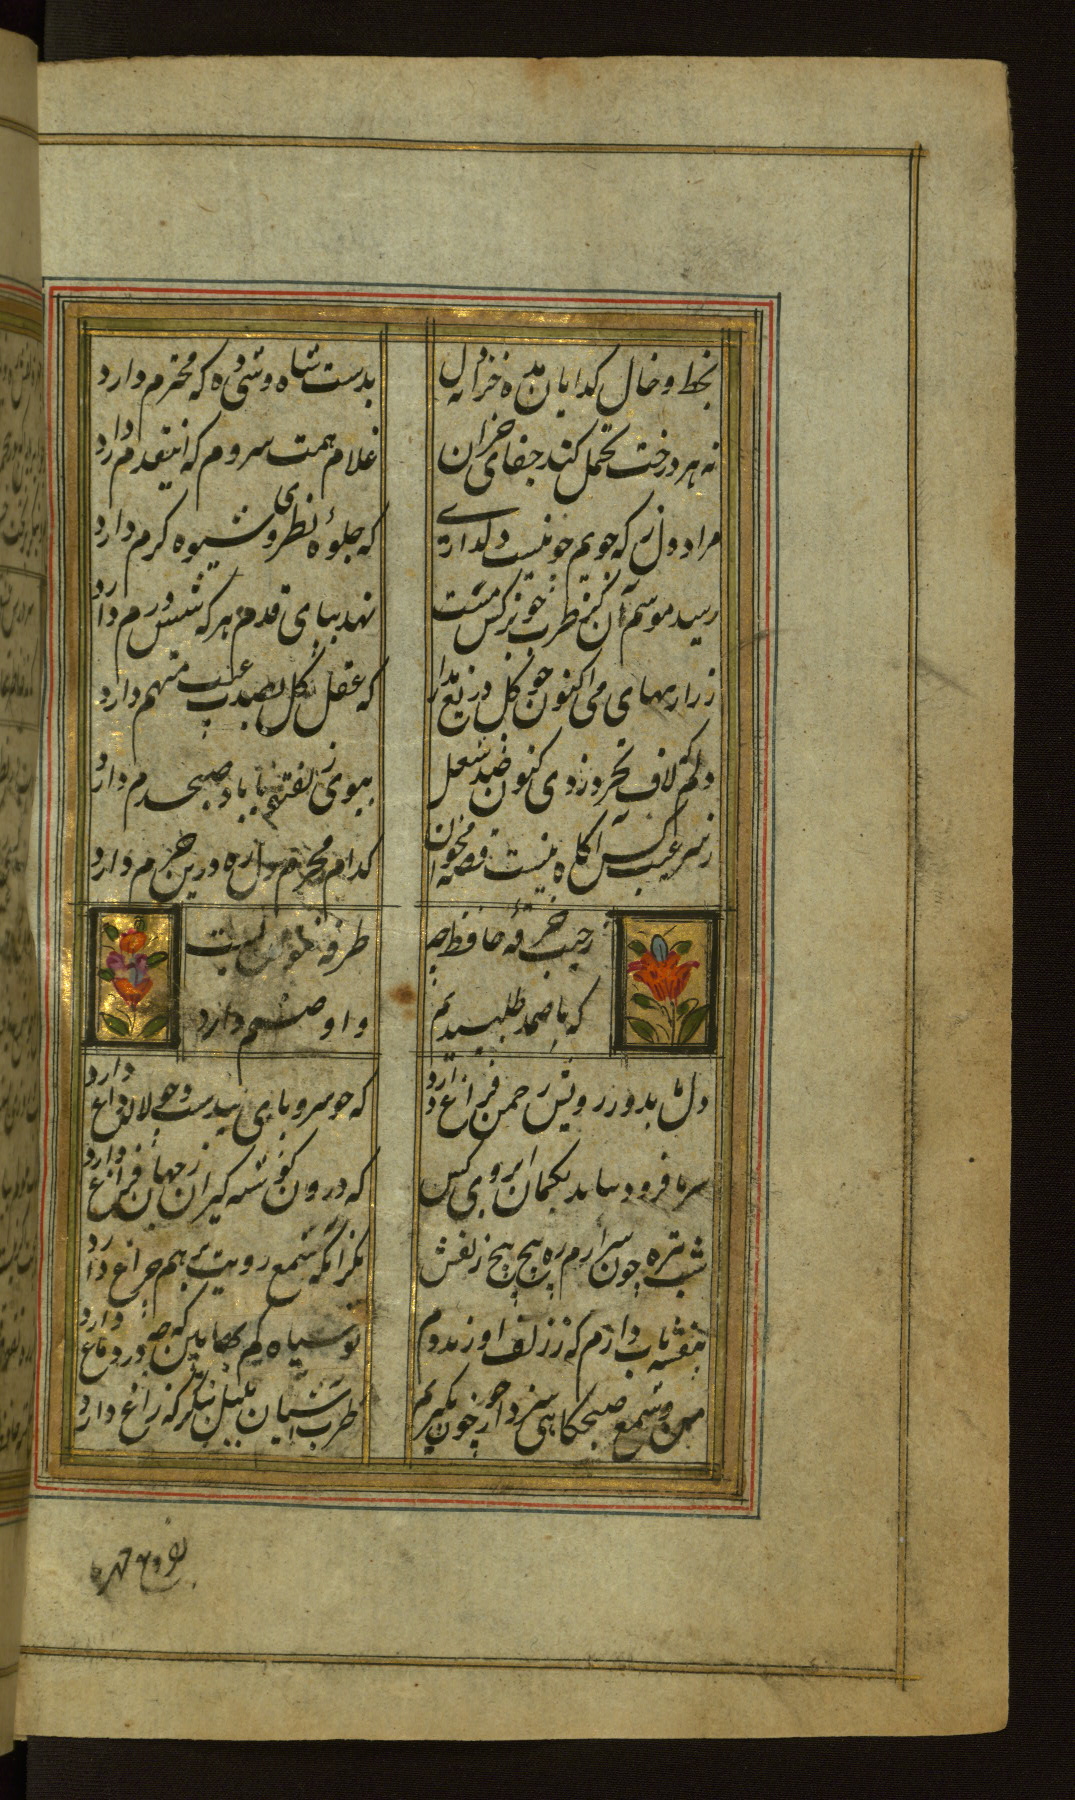 بخط و خال کدایان مده خزانه دل
بدست شاه وشی ده که محترم دارد
نه هر درخت تحمل کند جفای خزان
غلام همت سروم که اینقدم دارد
مراد دل ز که جویم چو نیست دلداری
که جلوه نظری و شیوه کرم دارد
رسید موسم آن کز طرب چو نرکس مست
نهد بپای قدم هر که شش درم دارد
زر از بهای می اکنون چو کل دریغ مدار
که عقل کل بصدت عیب متهم دارد
دلم که لاف تجرد زدی کنون صد شغل
ببوی زلف تو با باد صبحدم دارد
ز سر غیب کس آکاه نیست قصه مخوان
کدام محرم دل ره درین حرم دارد
ز جیب خرقه حافظ چه
طرفه بتوان بست
که ما صمد طلبیدیم
و او صنم دارد
دل ما بدور رویت ز چمن فراغ دارد
که چو سرو پای بندست و چو لاله داغ دارد
سر ما فرو نیاید بکمان ابروی کس
که درون کوشه کیران ز جهان فراغ دارد
شب تیره چون سر آرم ره پیچ پیچ زلفش
مکر آنکه شمع رویت برهم چراغ دارد
ز بنفشه تاب دارم که ز زلف او زند دم
تو سیاه کم بها بین که چه در دماغ دارد
من و شمع صبحکاهی سزد ار چو خون بکریم
طرب آشیان بلبل بنکر که زاغ دارد